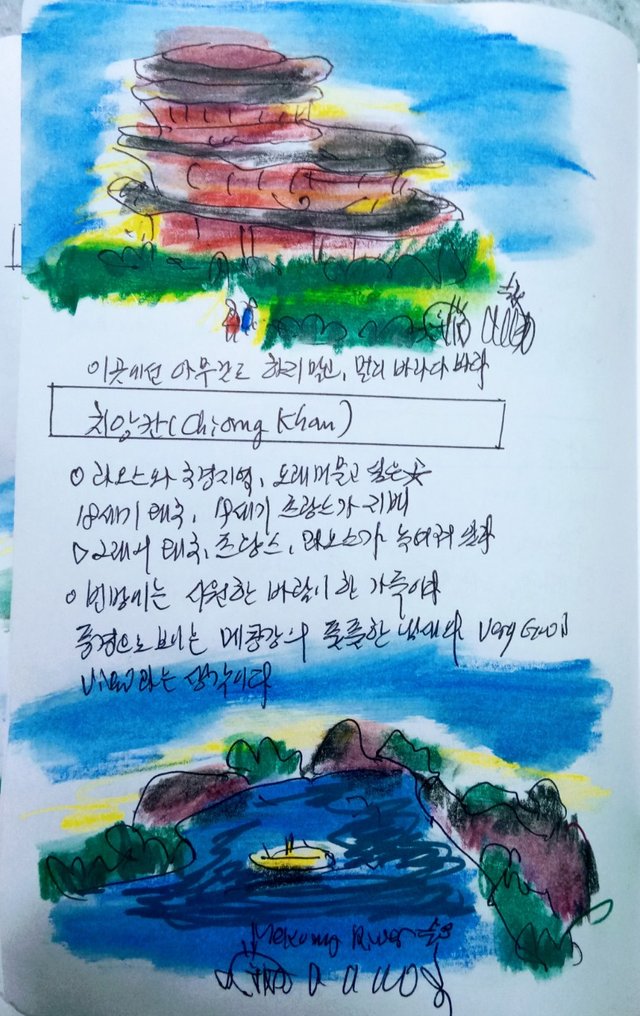 이곳에선 아무것도 하지 말고, 멀리 바라다 봐라
치앙칸(Chiang Khan)
○ 라오스와 국경지역, 오래 머물고 싶은 곳
18세기 태국, 19세기 프랑스가 지배
▷ 그래서 태국, 프랑스, 라오스가 녹아져 있다
○ 번방에는 시원한 바람이 한 가득이다
풍경으로 보이는 메콩강의 풋풋한 냄새와 Very Good
View라는 생각이다
Mekong River